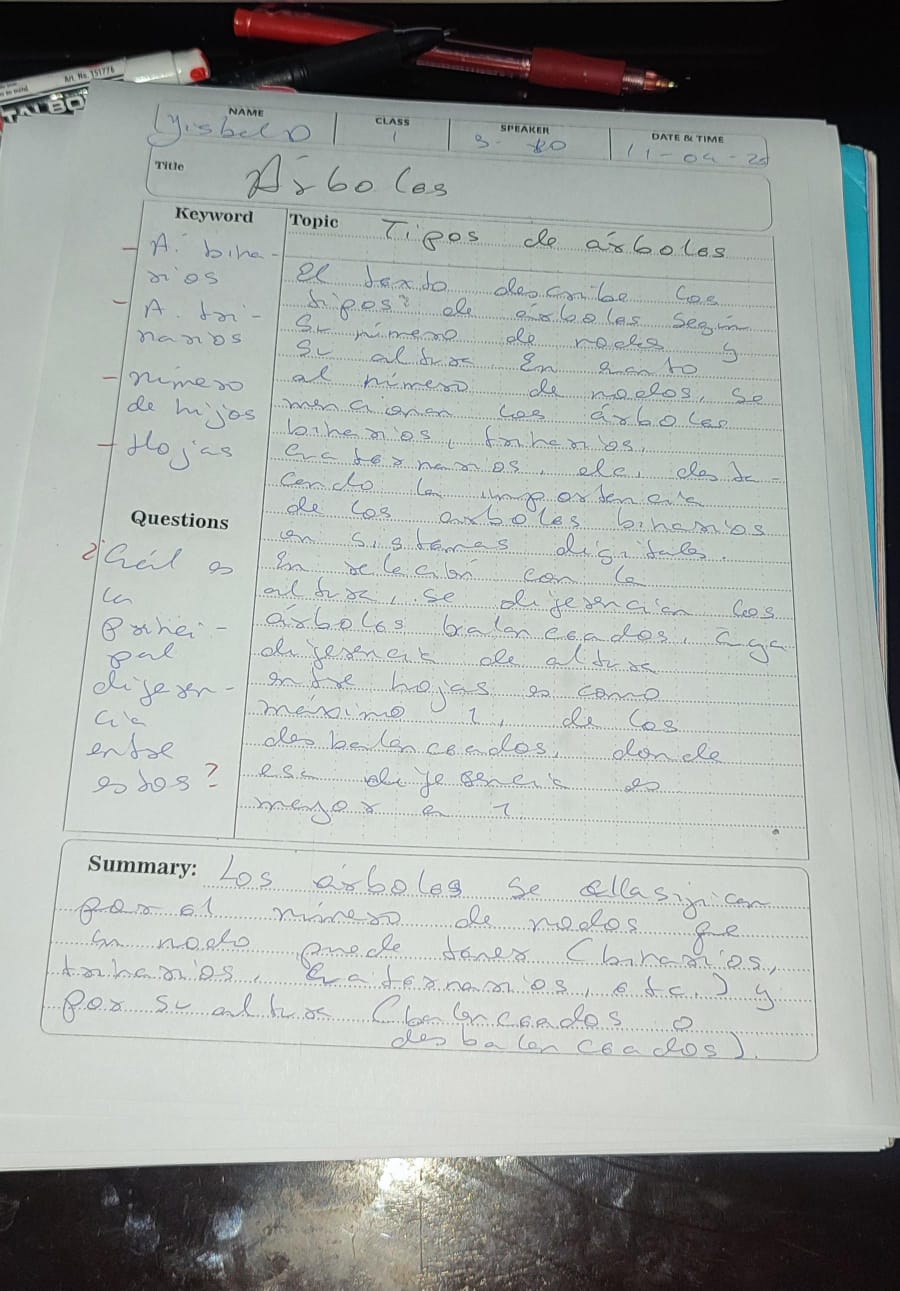 Art. No. 151776
NAME
Yisbel O
CLASS
1
SPEAKER
DATE & TIME
Title
Árboles
Keyword
- A. bina-
rios
- A. tri-
narios
- número
de hijos
- Hojas
Questions
¿Cuál es
la
princi-
pal
diferen-
cia
entre
estos?
Topic
Tipos de árboles
el texto describe los
tipos de árboles según
su número de nodos y
su altura. En cuanto
al número de nodos, se
mencionan los árboles
binarios, trinarios,
cuaternarios, etc, desta-
cando la importancia
de los arboles binarios
en sistemas digitales.
En relación con la
altura, se diferencian los
árboles balanceados, cuya
diferencia de altura
entre hojas es como
máximo 1, de los
desbalanceados, donde
esa diferencia es
mayor a 1.
Summary:
Los árboles se clasifican
por el número de nodos que
un nodo puede tener (binarios,
trinarios, cuaternarios, etc.) y
por su altura (balanceados o
desbalanceados).